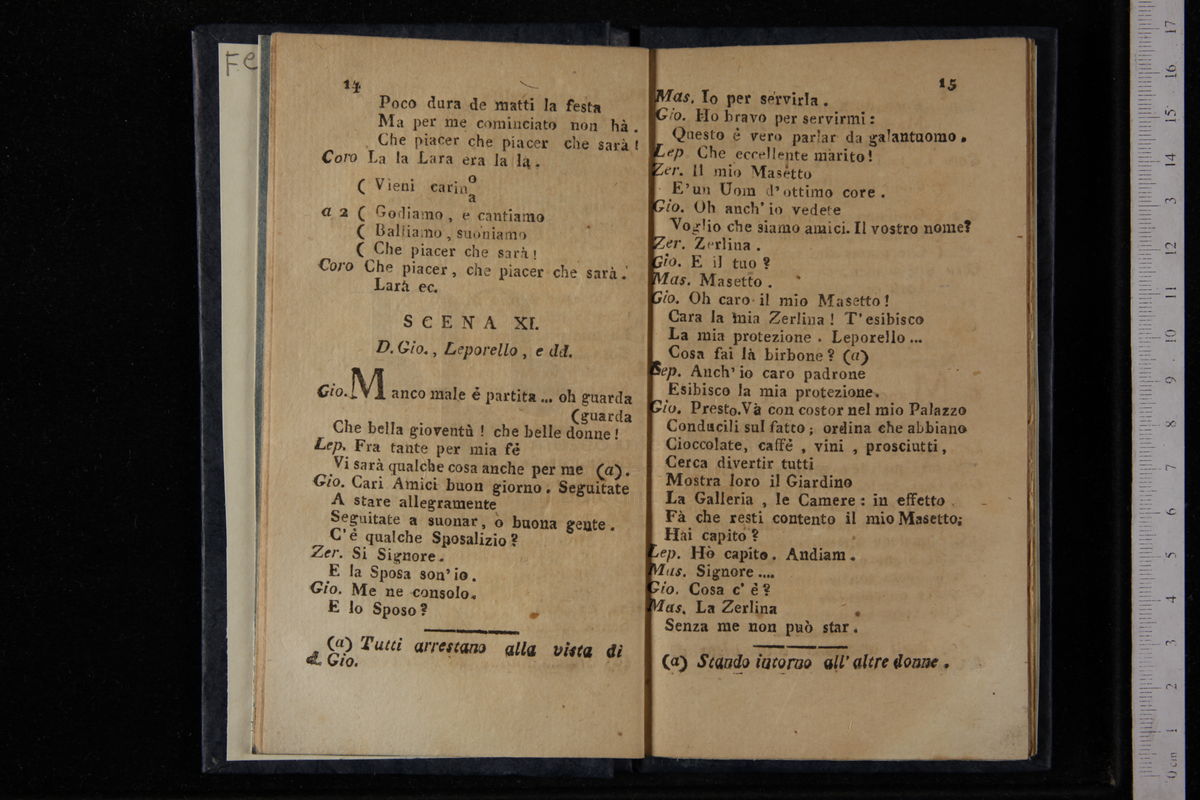 Fe
14
Poco dura de matti la festa
Ma per me cominciato non hà.
Che piacer che piacer che sarà!
Coro La la Lara era la la.
( Vieni carin o
a
a 2 ( Godiamo, e cantiamo
( Balliamo, suoniamo
( Che piacer che sarà!
Coro Che piacer, che piacer che sarà.
Larà ec.
SCENA XI.
D. Gio., Leporello, e dd.
Gio. Manco male è partita ... oh guarda
(guarda
Che bella gioventù! che belle donne!
Lep. Fra tante per mia fè
Vi sarà qualche cosa anche per me (a).
Gio. Cari Amici buon giorno. Seguitate
A stare allegramente
Seguitate a suonar, o buona gente.
C'è qualche Sposalizio?
Zer. Si Signore.
E la Sposa son'io.
Gio. Me ne consolo.
E lo Sposo?
(a) Tutti arrestano alla vista di
d. Gio.
15
Mas. Io per servirla.
Gio. Ho bravo per servirmi:
Questo è vero parlar da galantuomo.
Lep Che eccellente marito!
Zer. Il mio Masetto
E'un Uom d'ottimo core.
Gio. Oh anch'io vedete
Voglio che siamo amici. Il vostro nome?
Zer. Zerlina.
Gio. E il tuo?
Mas. Masetto.
Gio. Oh caro il mio Masetto!
Cara la mia Zerlina! T'esibisco
La mia protezione. Leporello ...
Cosa fai là birbone? (a)
Lep. Anch'io caro padrone
Esibisco la mia protezione.
Gio. Presto. Và con costor nel mio Palazzo
Conducili sul fatto; ordina che abbiano
Cioccolate, caffè, vini, prosciutti,
Cerca divertir tutti
Mostra loro il Giardino
La Galleria, le Camere: in effetto
Fà che resti contento il mio Masetto;
Hai capito?
Lep. Hò capito. Andiam.
Mas. Signore ....
Gio. Cosa c'è?
Mas. La Zerlina
Senza me non può star.
(a) Stando intorno all'altre donne.
0 cm 1 2 3 4 5 6 7 8 9 10 11 12 13 14 15 16 17